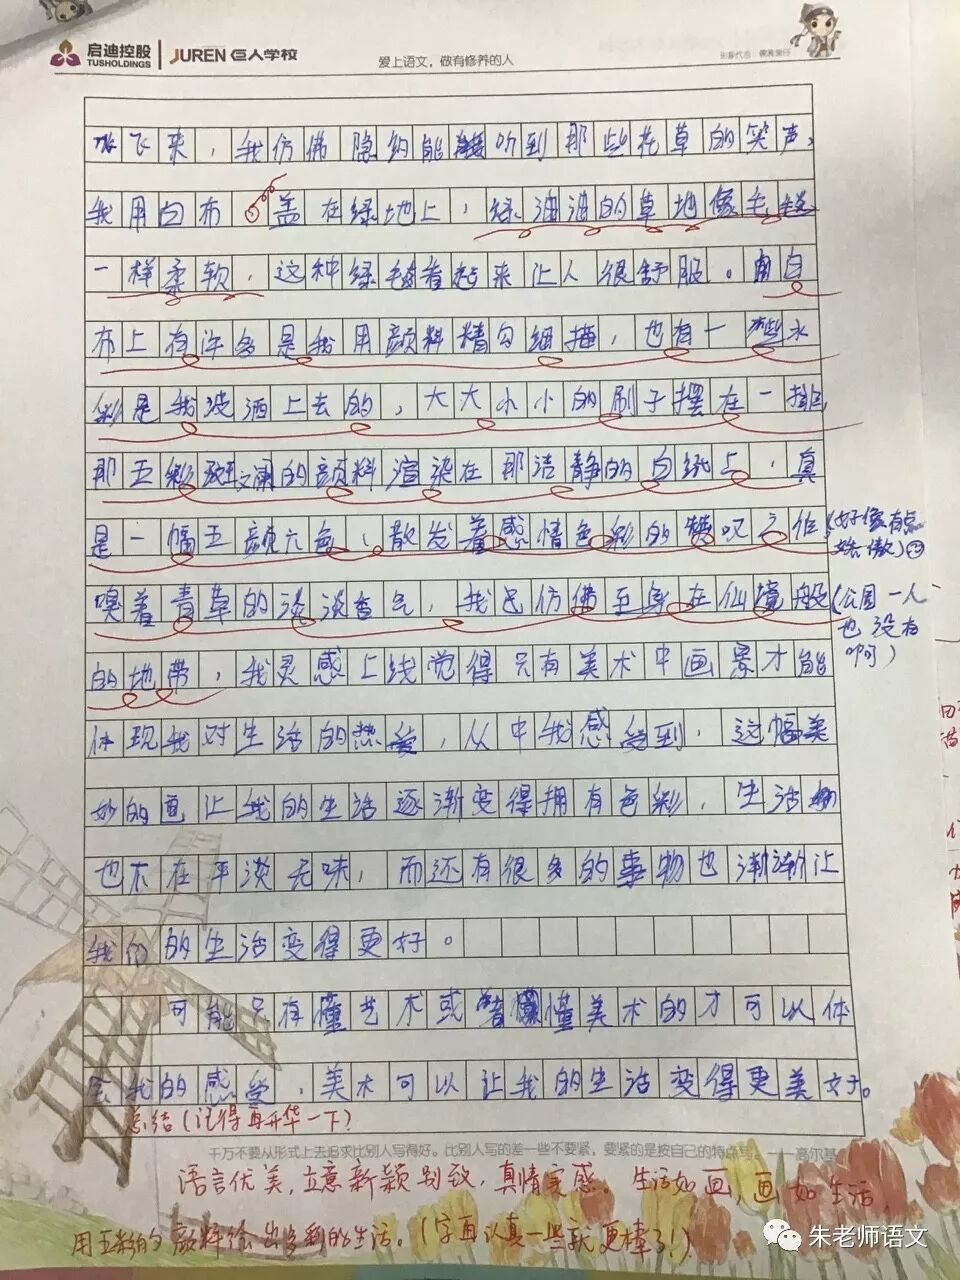 启迪控股 TUSHOLDINGS JUREN 巨人学校
爱上语文，做有修养的人
飞来，我仿佛隐约能听到那些花草的笑声，
我用白布盖在绿地上，绿油油的草地像毛毯
一样柔软，这种绿毯看起来让人很舒服。白
布上有许多是我用颜料精勾细描，也有一些水
彩是我泼洒上去的，大大小小的刷子摆在一排，
那五彩斑斓的颜料渲染在那洁静的白纸上，真
是一幅五颜六色，散发着感情色彩的赞叹之作（好像有点
骄傲）
嗅着青草的淡淡香气，我也仿佛至身在仙境般（公园一人
也没有啊）
的地带，我灵感上线觉得只有美术中画景才能
体现我对生活的热爱，从中我感受到，这幅美
妙的画让我的生活逐渐变得拥有色彩，生活
也不在平淡无味，而还有很多的事物也渐渐让
我们的生活变得更好。
可能只有懂艺术或者懂美术的才可以体
会我的感受，美术可以让我的生活变得更美好。
总结（记得再升华一下）
千万不要从形式上去追求比别人写得好。比别人写的差一些不要紧，要紧的是按自己的特点写。——高尔基
语言优美，立意新颖别致，真情实感。生活如画，画如生活，
用五彩的颜料绘出多彩的生活。（字再认真一些就更棒了！）
朱老师语文